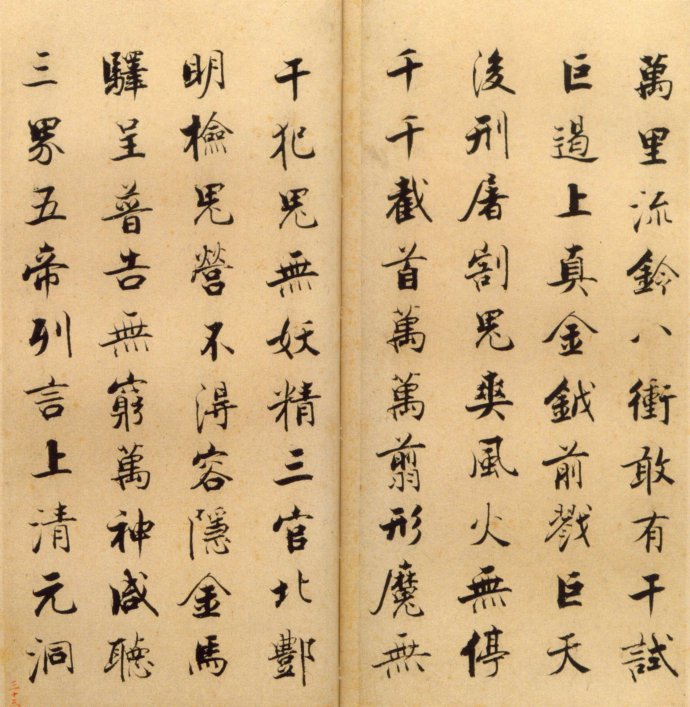 萬里流鈴八衝敢有干試
巨遏上真金鉞前戮巨天
後刑屠割鬼爽風火無停
千千截首萬萬翦形魔無
干犯鬼無妖精三官北酆
明檢鬼營不得容隱金馬
驛呈普告無窮萬神咸聽
三界五帝列言上清元洞